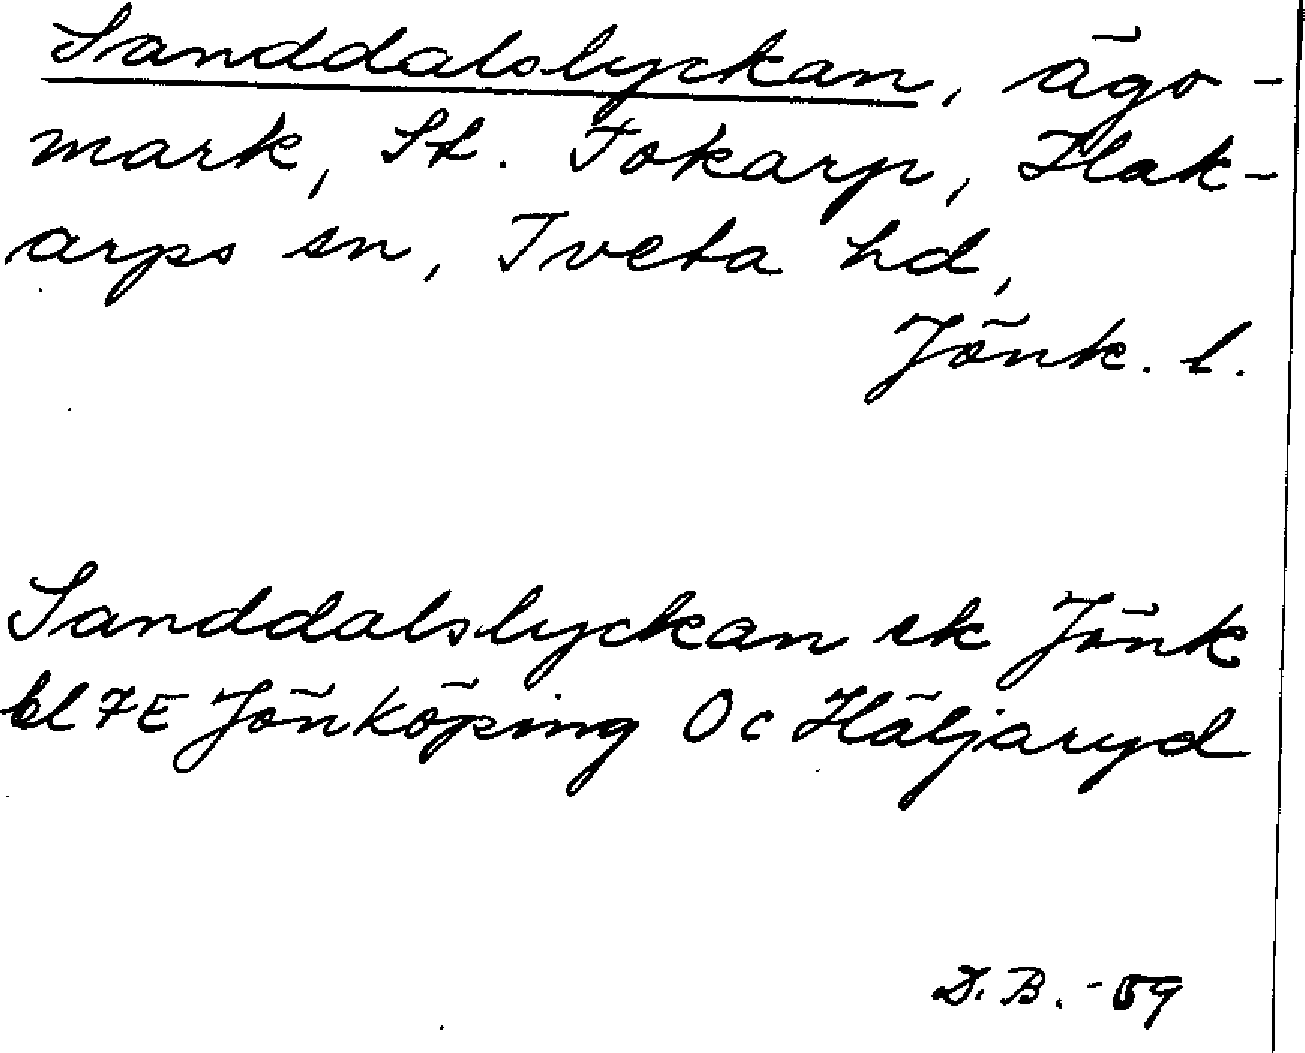 Sanddalslyckan, ägo-
mark, St. Fokarp, Hak-
arps sn, Tveta hd,
Jönk. l.
Sanddalslyckan ek Jönk
bl 7E Jönköping Oc Häljaryd
D.B. -59